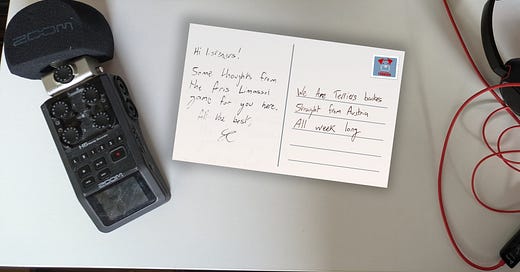 ZOOM
H6
ZOOM
Hi Listeners!
Some thoughts from
the Aris Limassol
game for you here.
All the best,
We Are Terriers
Straight from Austria
All week long